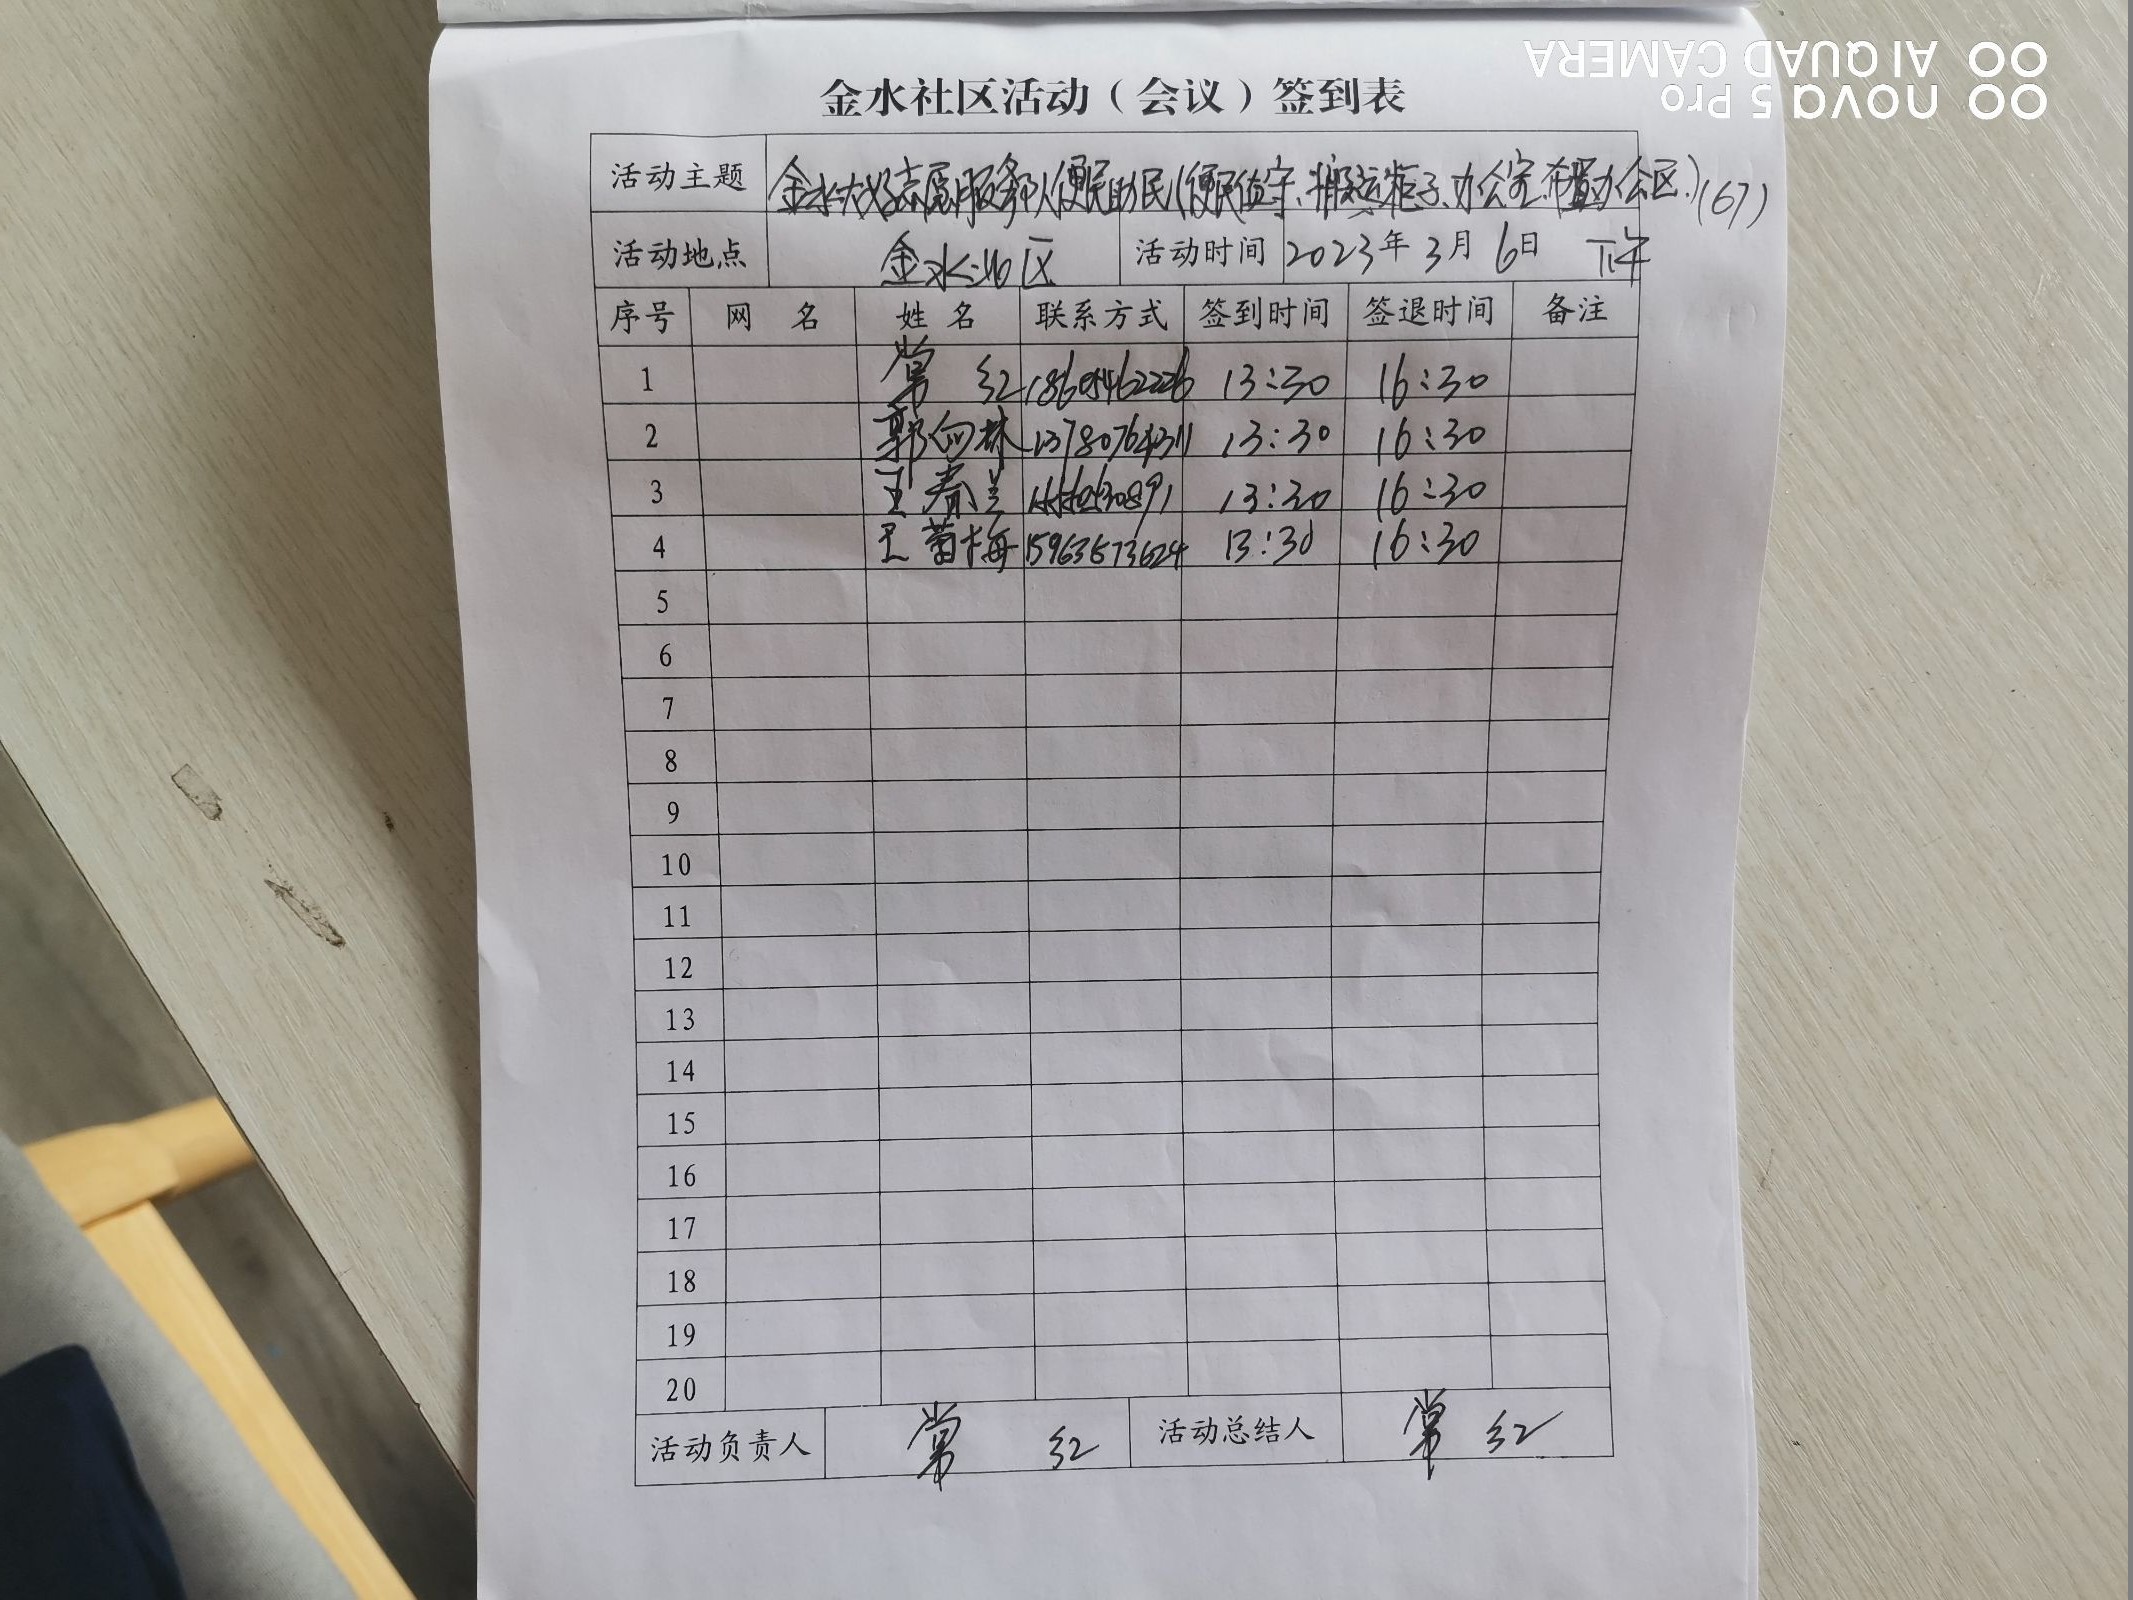 金水社区活动（会议）签到表
活动主题 金水 志愿服务队便民助民(便民值守、搬运柜子、办公室、布置办公区)(67)
活动地点 金水社区 活动时间 2023年3月6日 下午
序号 网 名 姓 名 联系方式 签到时间 签退时间 备注
1 常 红 13:30 16:30
2 郭向林 13:30 16:30
3 王春兰 13:30 16:30
4 王菊梅 15963573624 13:30 16:30
5
6
7
8
9
10
11
12
13
14
15
16
17
18
19
20
活动负责人 常 红 活动总结人 常 红
nova 5 Pro
AI QUAD CAMERA